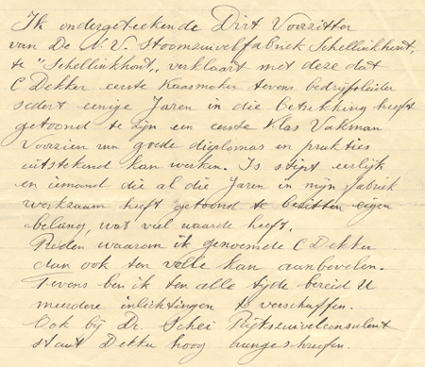 Ik ondergeteekende Dirt Voorzitter
van De N.V. Stoomzuivelfabriek Schellinkhout,
te "Schellinkhout", verklaart met deze dat
C Dekker eerste Kaasmaker tevens bedrijfsleider
sedert eenige Jaren in die betrekking heeft
getoond te zijn een eerste Klas Vakman
Voorzien van goede diplomas en prakties
uitstekend kan werken. Is stipt eerlijk
en iemand die al die Jaren in mijn fabriek
werkzaam heeft getoond te bezitten eigen
abelang, wat veel waarde heeft.
Reden waarom ik genoemde C Dekker
dan ook ten volle kan aanbevelen.
Tevens ben ik ten alle tijde bereid U
meerdere inlichtingen te verschaffen.
Ook bij Dr. Schei Rijkszuivelconsulent
staat Dekker hoog aangeschreven.